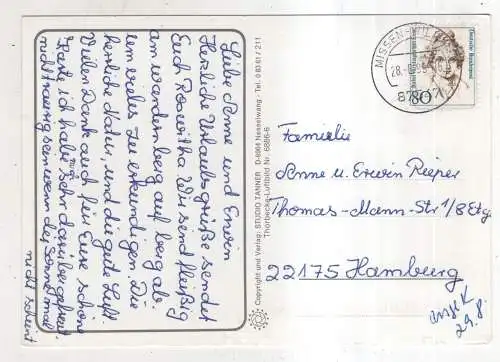 Liebe Anne und Erwin
Herzliche Urlaubsgrüße sendet
Euch Roswitha. Wir sind fleißig
am wandern berg auf berg ab.
um vieles zu erkundigen. Die
herrliche Natur, und die gute Luft.
Vielen Dank auch für Eure schöne
Karte ich habe mich sehr darüber gefreut.
nicht traurig sein wenn die Sonne mal
nicht scheint
Copyright und Verlag: STUDIO TANNER D-8964 Nesselwang · Tel. 08361/211
Thorbecke-Luftbild Nr. 6886-6
MISSEN-WIL
28.
Deutsche Bundespost
80
Familie
Anne u. Erwin Rieper
Thomas-Mann-Str 1/8 Etg.
22175 Hamburg
29.8.